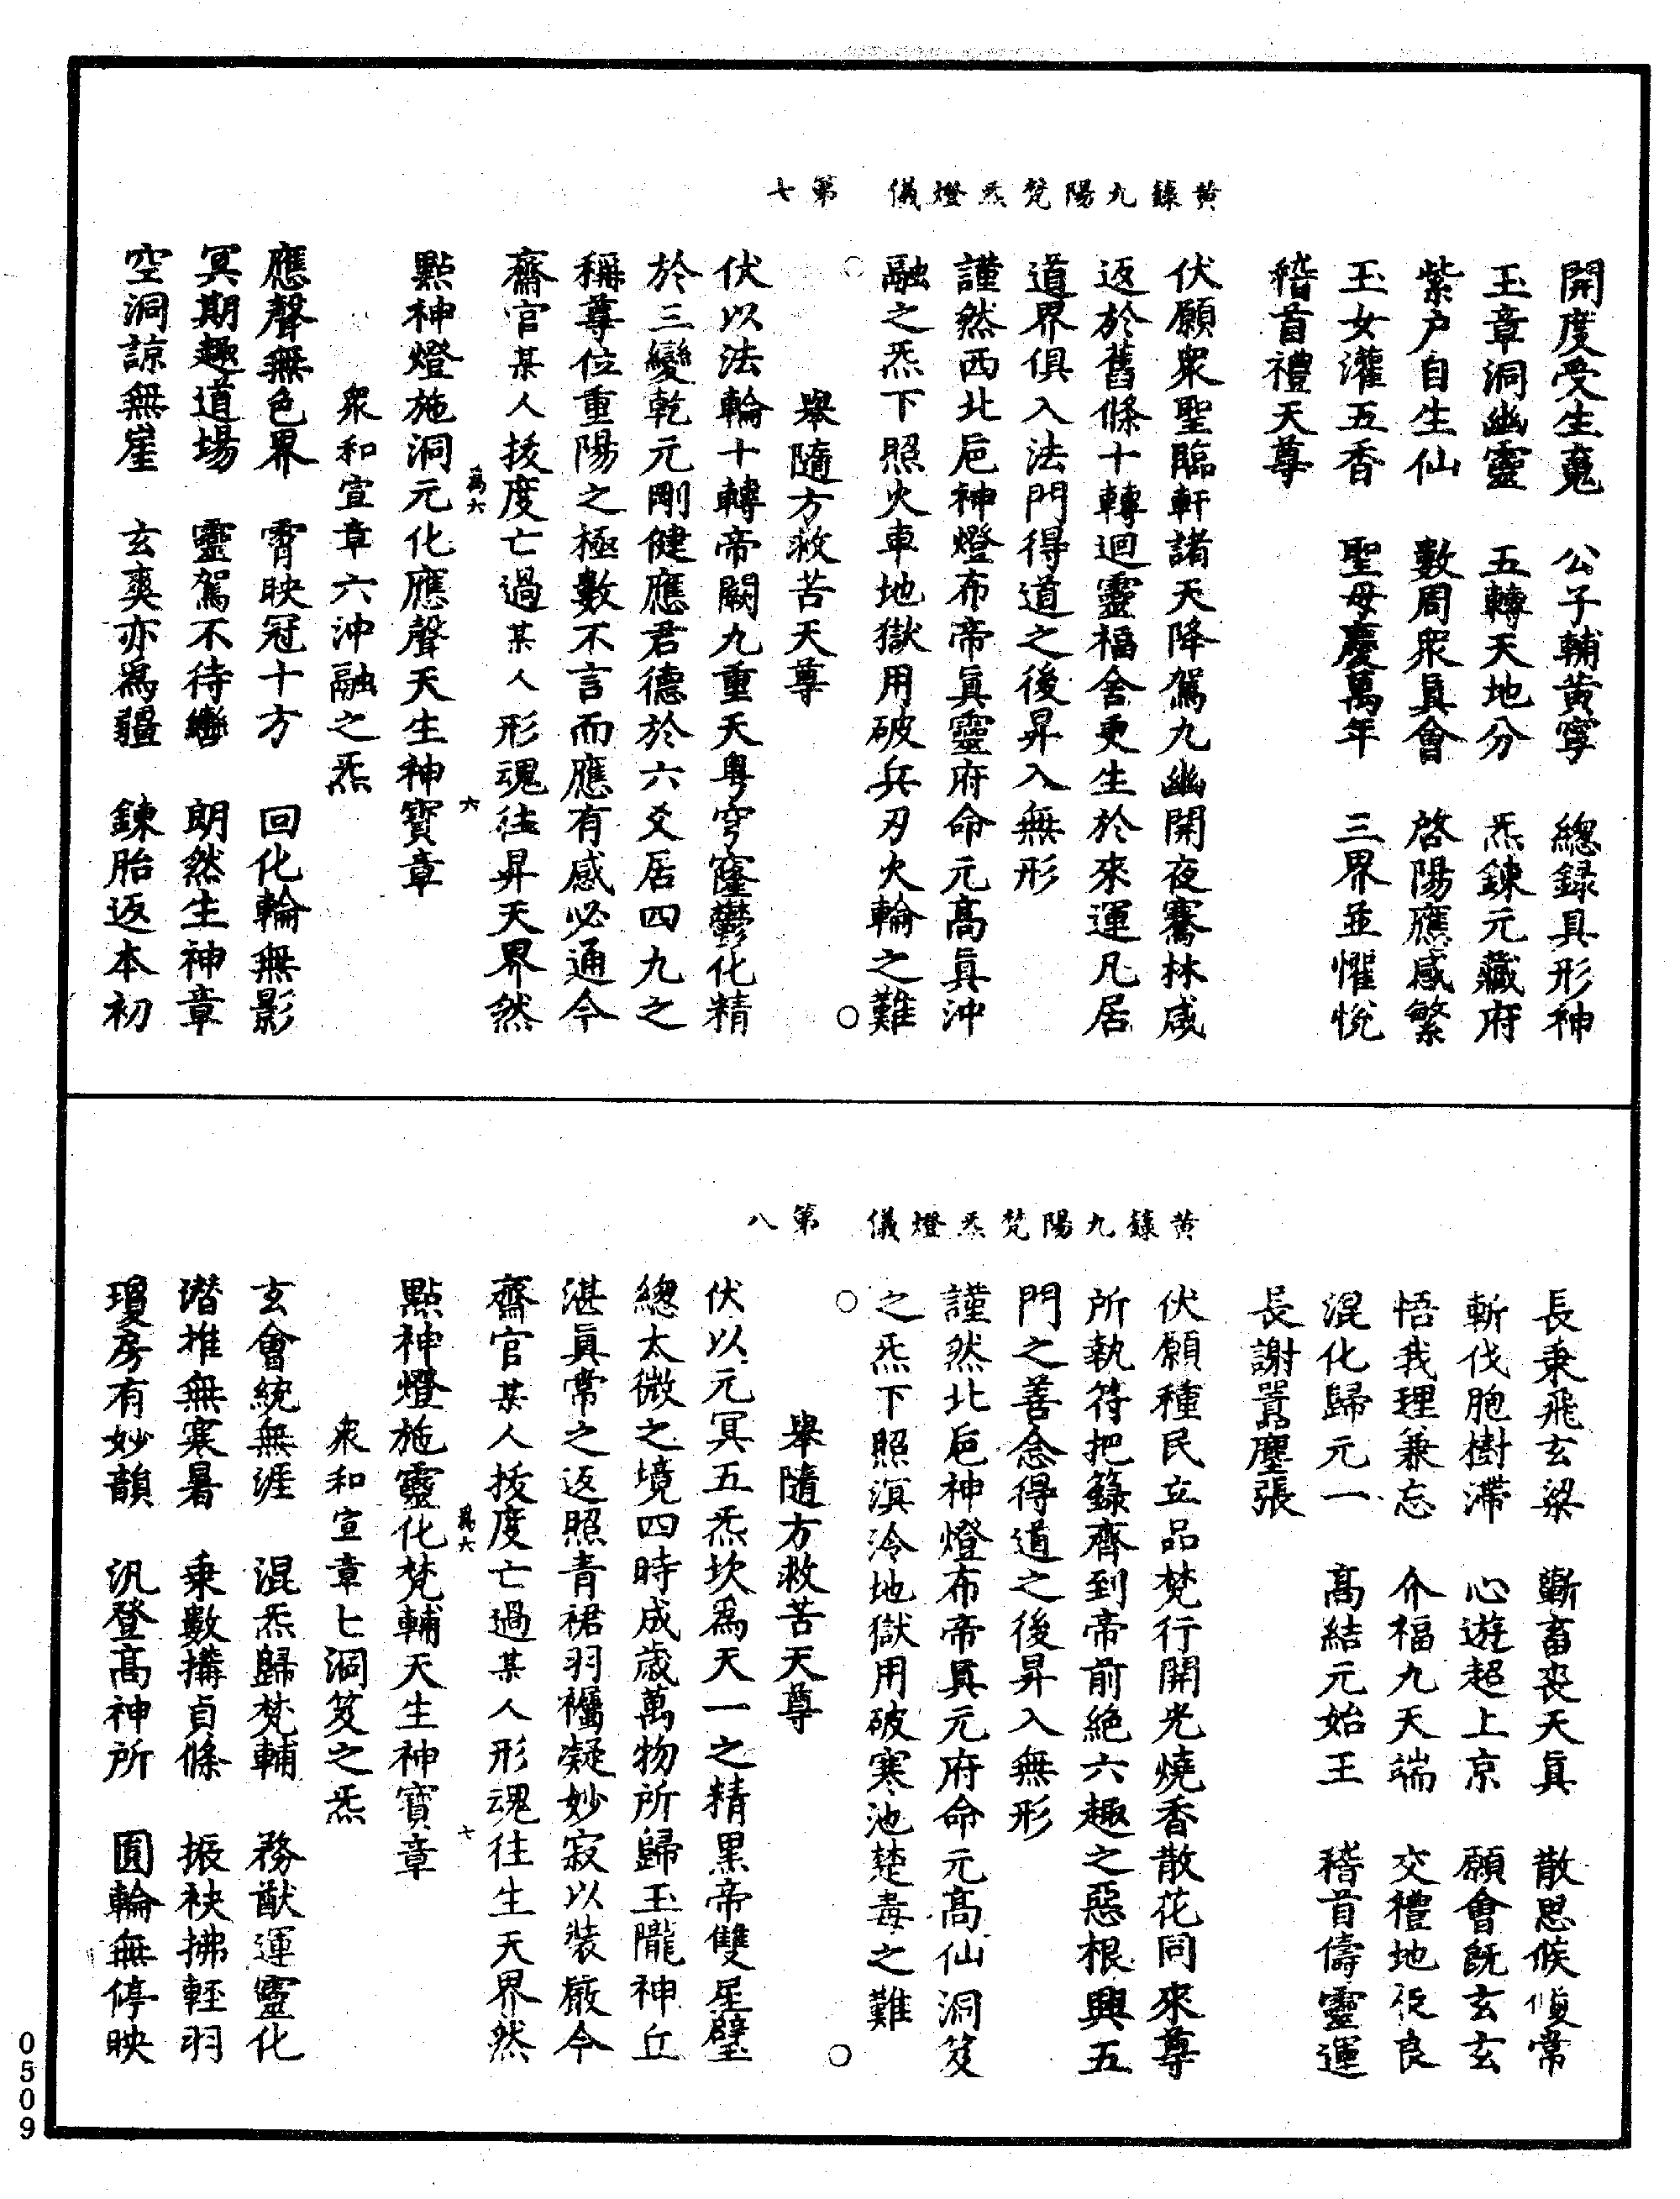 開度受生魂　公子輔黃寧　總錄具形神
玉章洞幽靈　五轉天地分　炁鍊元藏府
紫户自生仙　數周衆眞會　啓陽應感繁
玉女灌五香　聖母慶萬年　三界並懽悅
稽首禮天尊
伏願衆聖臨軒諸天降駕九幽開夜騫林咸
返於舊條十轉迴靈福舍更生於來運凡居
道界俱入法門得道之後昇入無形
謹然西北巵神燈布帝眞靈府命元髙眞沖
融之炁下照火車地獄用破兵刃火輪之難
黃籙九陽梵炁燈儀　第七
○　○
舉隨方救苦天尊
伏以法輪十轉帝闕九重天粤穹窿鬱化精
於三變乾元剛健應君德於六爻居四九之
稱尊位重陽之極數不言而應有感必通今
齋官某人拔度亡過某人形魂往昇天界然
爲六　六
點神燈施洞元化應聲天生神寶章
衆和宣章六沖融之炁
應聲無色界　霄映冠十方　回化輪無影
冥期趣道場　靈駕不待轡　朗然生神章
空洞諒無崖　玄爽亦爲疆　鍊胎返本初
長秉飛玄梁　蕲畜喪天眞　散思候 常
斬伐胞樹滯　心遊超上京　願會旣玄玄
悟我理兼忘　介福九天端　交禮地伇良
混化歸元一　髙結元始王　稽首儔靈運
長謝囂塵張
伏願種民立品梵行開光燒香散花同來尊
所執符把籙齊到帝前絶六趣之惡根興五
門之善念得道之後昇入無形
謹然北巵神燈布帝眞元府命元髙仙洞笈
之炁下照溟泠地獄用破寒池楚毒之難
黃籙九陽梵炁燈儀　第八
○　○
舉隨方救苦天尊
伏以元冥五炁坎爲天一之精黑帝雙星璧
總太微之境四時成歲萬物所歸玉隴神丘
湛眞常之返照青裙羽襹凝妙寂以裝嚴今
齋官某人拔度亡過某人形魂往生天界然
爲六　七
點神燈施靈化梵輔天生神寶章
衆和宣章七洞笈之炁
玄會統無涯　混炁歸梵輔　務猷運靈化
潛推無寒暑　乘數搆貞條　振袂拂輕羽
瓊房有妙韻　汎登髙神所　圓輪無停映
0509